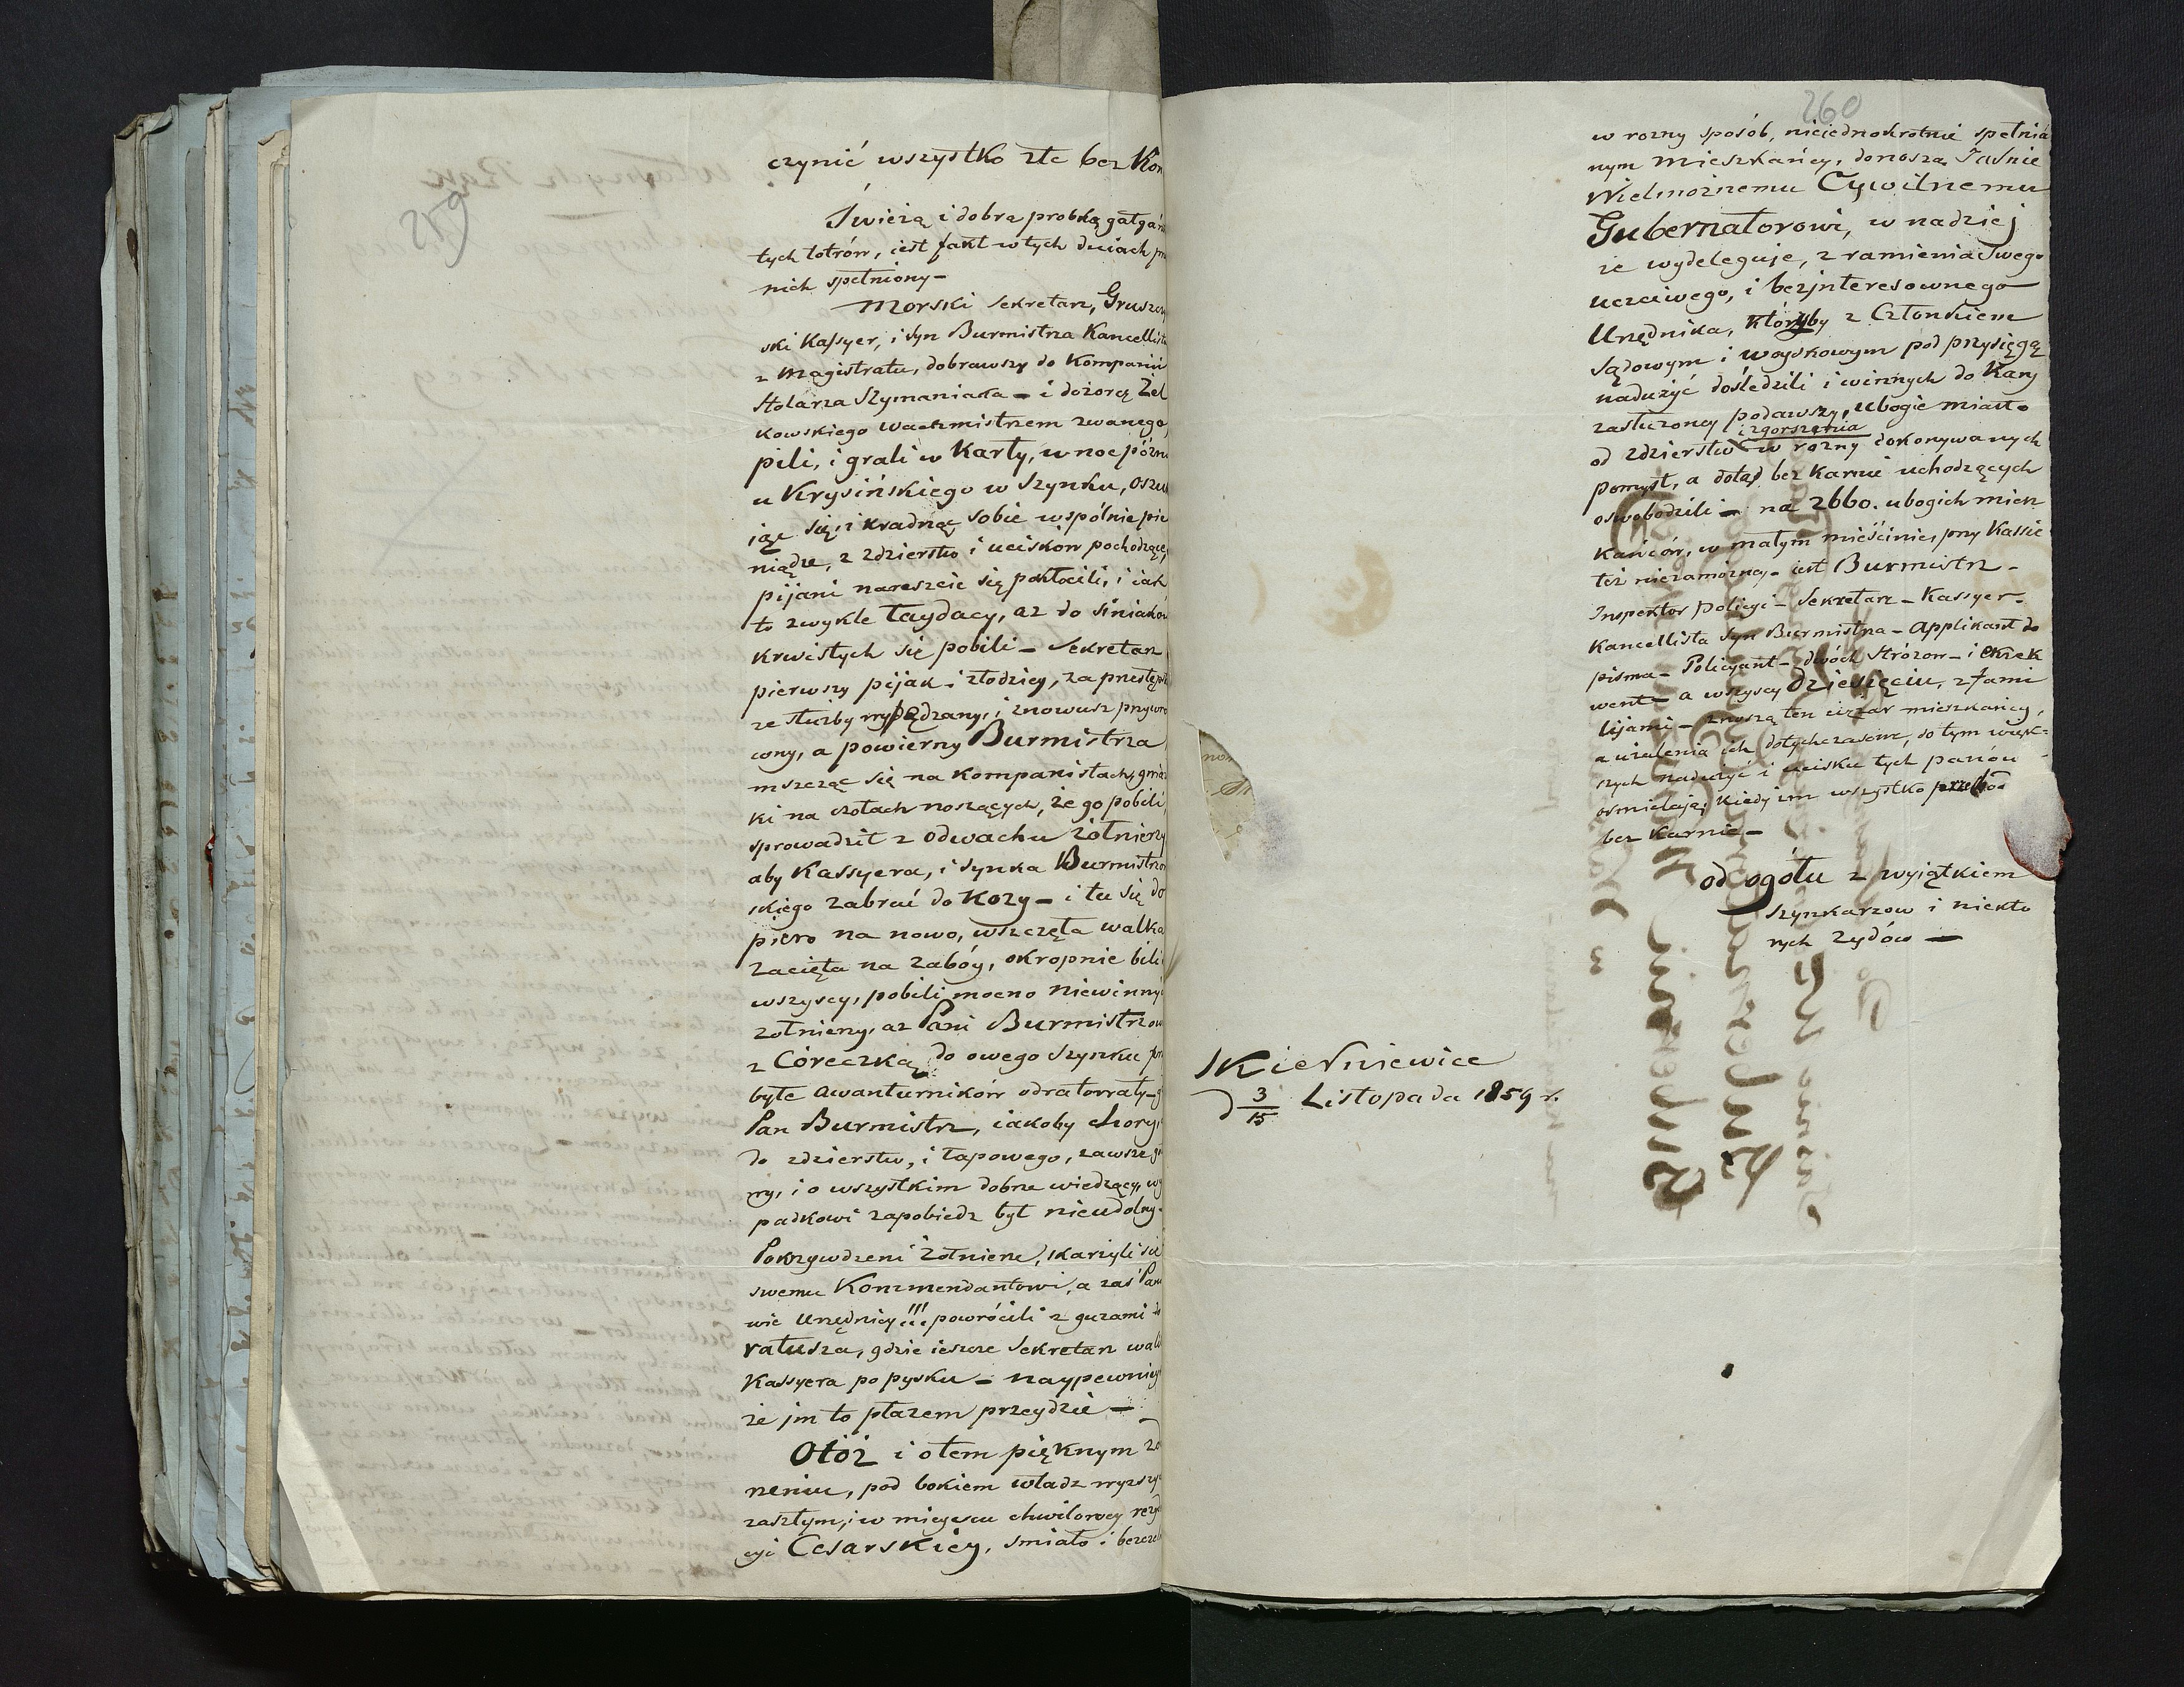 259
czynić wszystko złe bez Kon
Swieżą i dobrą probką gałgań
tych łotrów, iest fakt w tych dniach prz
nich spełniony –
Morski Sekretarz, Gruszczy
ski Kassyer, i Syn Burmistrza Kancellista
z Magistratu, dobrawszy do Kompanii
Stolarza Szymaniaka – i dozorcę Zieł
kowskiego wachmistrzem zwanego,
pili, i grali w Karty, w noc późn
u Krysińskiego w Szynku, oszuk
iąc się, i kradnąc sobie wspólnie pie
niądze, z zdzierstw i ucisków pochodzące,
pijani nareszcie się pokłocili, i iak
to zwykle Łaydacy, az do siniaków
Krwistych się pobili – Sekretarz
pierwszy pijak i złodziey, za przestęps
ze służby wypędzany, i znowusz przywro
cony, a powierny Burmistrza
mszcząc się na kompanistach, gwiaz
ki na czołach noszących, że go pobili,
sprowadził z odwachu żółnierzy
aby Kassyera, i Synka Burmistrzow
skiego zabrać do Kozy – i tu się do
piero na nowo, wszczęła walka
zacięta na zabóy, okropnie bili
wszyscy, pobili mocno niewinnych
żołnierzy, az Pani Burmistrzow
z Córeczką do owego Szynku prz
byłe awanturników odratowały –
Pan Burmistrz, iakoby chory,
do zdzierstw, i łapowego, zawsze go
wy, i o wszystkim dobrze wiedzący, wy
padkowi zapobiedz był nieudolny.
Pokrzywdzeni Żołnierze, skarżyli się
swemu Kommendantowi, a zaś Pano
wie Urzędnicy!!! powrócili z guzami do
ratusza, gdzie ieszcze Sekretarz walił
Kassyera po pysku – naypewniey
że jm to płazem przeydzie –
Otóż i o tem pięknym zd
rzeniu, pod bokiem władz wyższych
zaszłym, i w mieyscu chwilowey rezyd
cyi Cesarskiey, śmiało i bezcz
260
w rozny sposób, niejednokrotnie spełnia
nym mieszkańcy, donoszą Jaśnie
Wielmożnemu Cywilnemu
Gubernatorowi, w nadziej
ze wydeleguje, z ramienia Swego
uczciwego, i bezjnteresownego
Urzędnika, któryby z Członkiem
Sądowym i woyskowym pod przysięgą
nadużyć dośledzili i winnych do Kary
zasłużoney podawszy, ubogie miasto
i zgorszenia
od zdzierstw w rozny dokonywanych
pomysł, a dotąd bez karnie uchodzących
oswobodzili – na 2660. ubogich miesz
kańców, w małym mieścinie, przy Kassie
też niezamożney – iest Burmistrz –
Inspektor Policyi – Sekretarz – Kassyer –
Kancellista Syn Burmistrza – Applikant do
pisma – Policyant – dwóch Stróżow – i exzek
went – a wszyscy dziesięciu, z fami
lijami – znoszą ten ciężar mieszkańcy,
a użalenia ich dotychczasowe, do tym więk=
szych nadużyć i ucisku tych panów
ośmielają, kiedy im wszystko
bez karnie –
od ogółu z wyjątkiem
Szynkarzow i niekto
rych żydów –
Skierniewice
d 3/15 Listopada 1859 r.